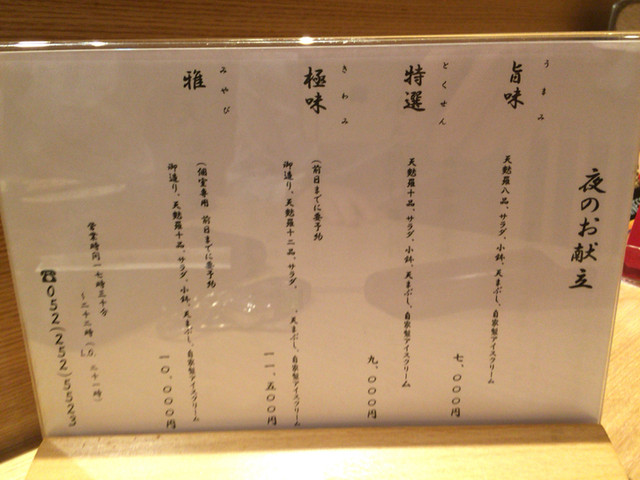 夜のお献立
うまみ
旨味
天麩羅八品、サラダ、小鉢、天まぶし、自家製アイスクリーム
七、〇〇〇円
とくせん
特選
天麩羅十品、サラダ、小鉢、天まぶし、自家製アイスクリーム
九、〇〇〇円
きわみ
極味
(前日までに要予約
御造り、天麩羅十二品、サラダ、、天まぶし、自家製アイスクリーム
一一、五〇〇円
みやび
雅
(個室専用 前日までに要予約
御造り、天麩羅十品、サラダ、小鉢、天まぶし、自家製アイスクリーム
一〇、〇〇〇円
営業時間一七時三十分
～二十二時(L.O.二十一時)
☎052(252)5523